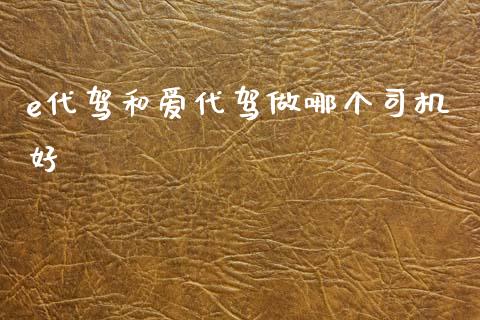 e代驾和爱代驾做哪个司机
好